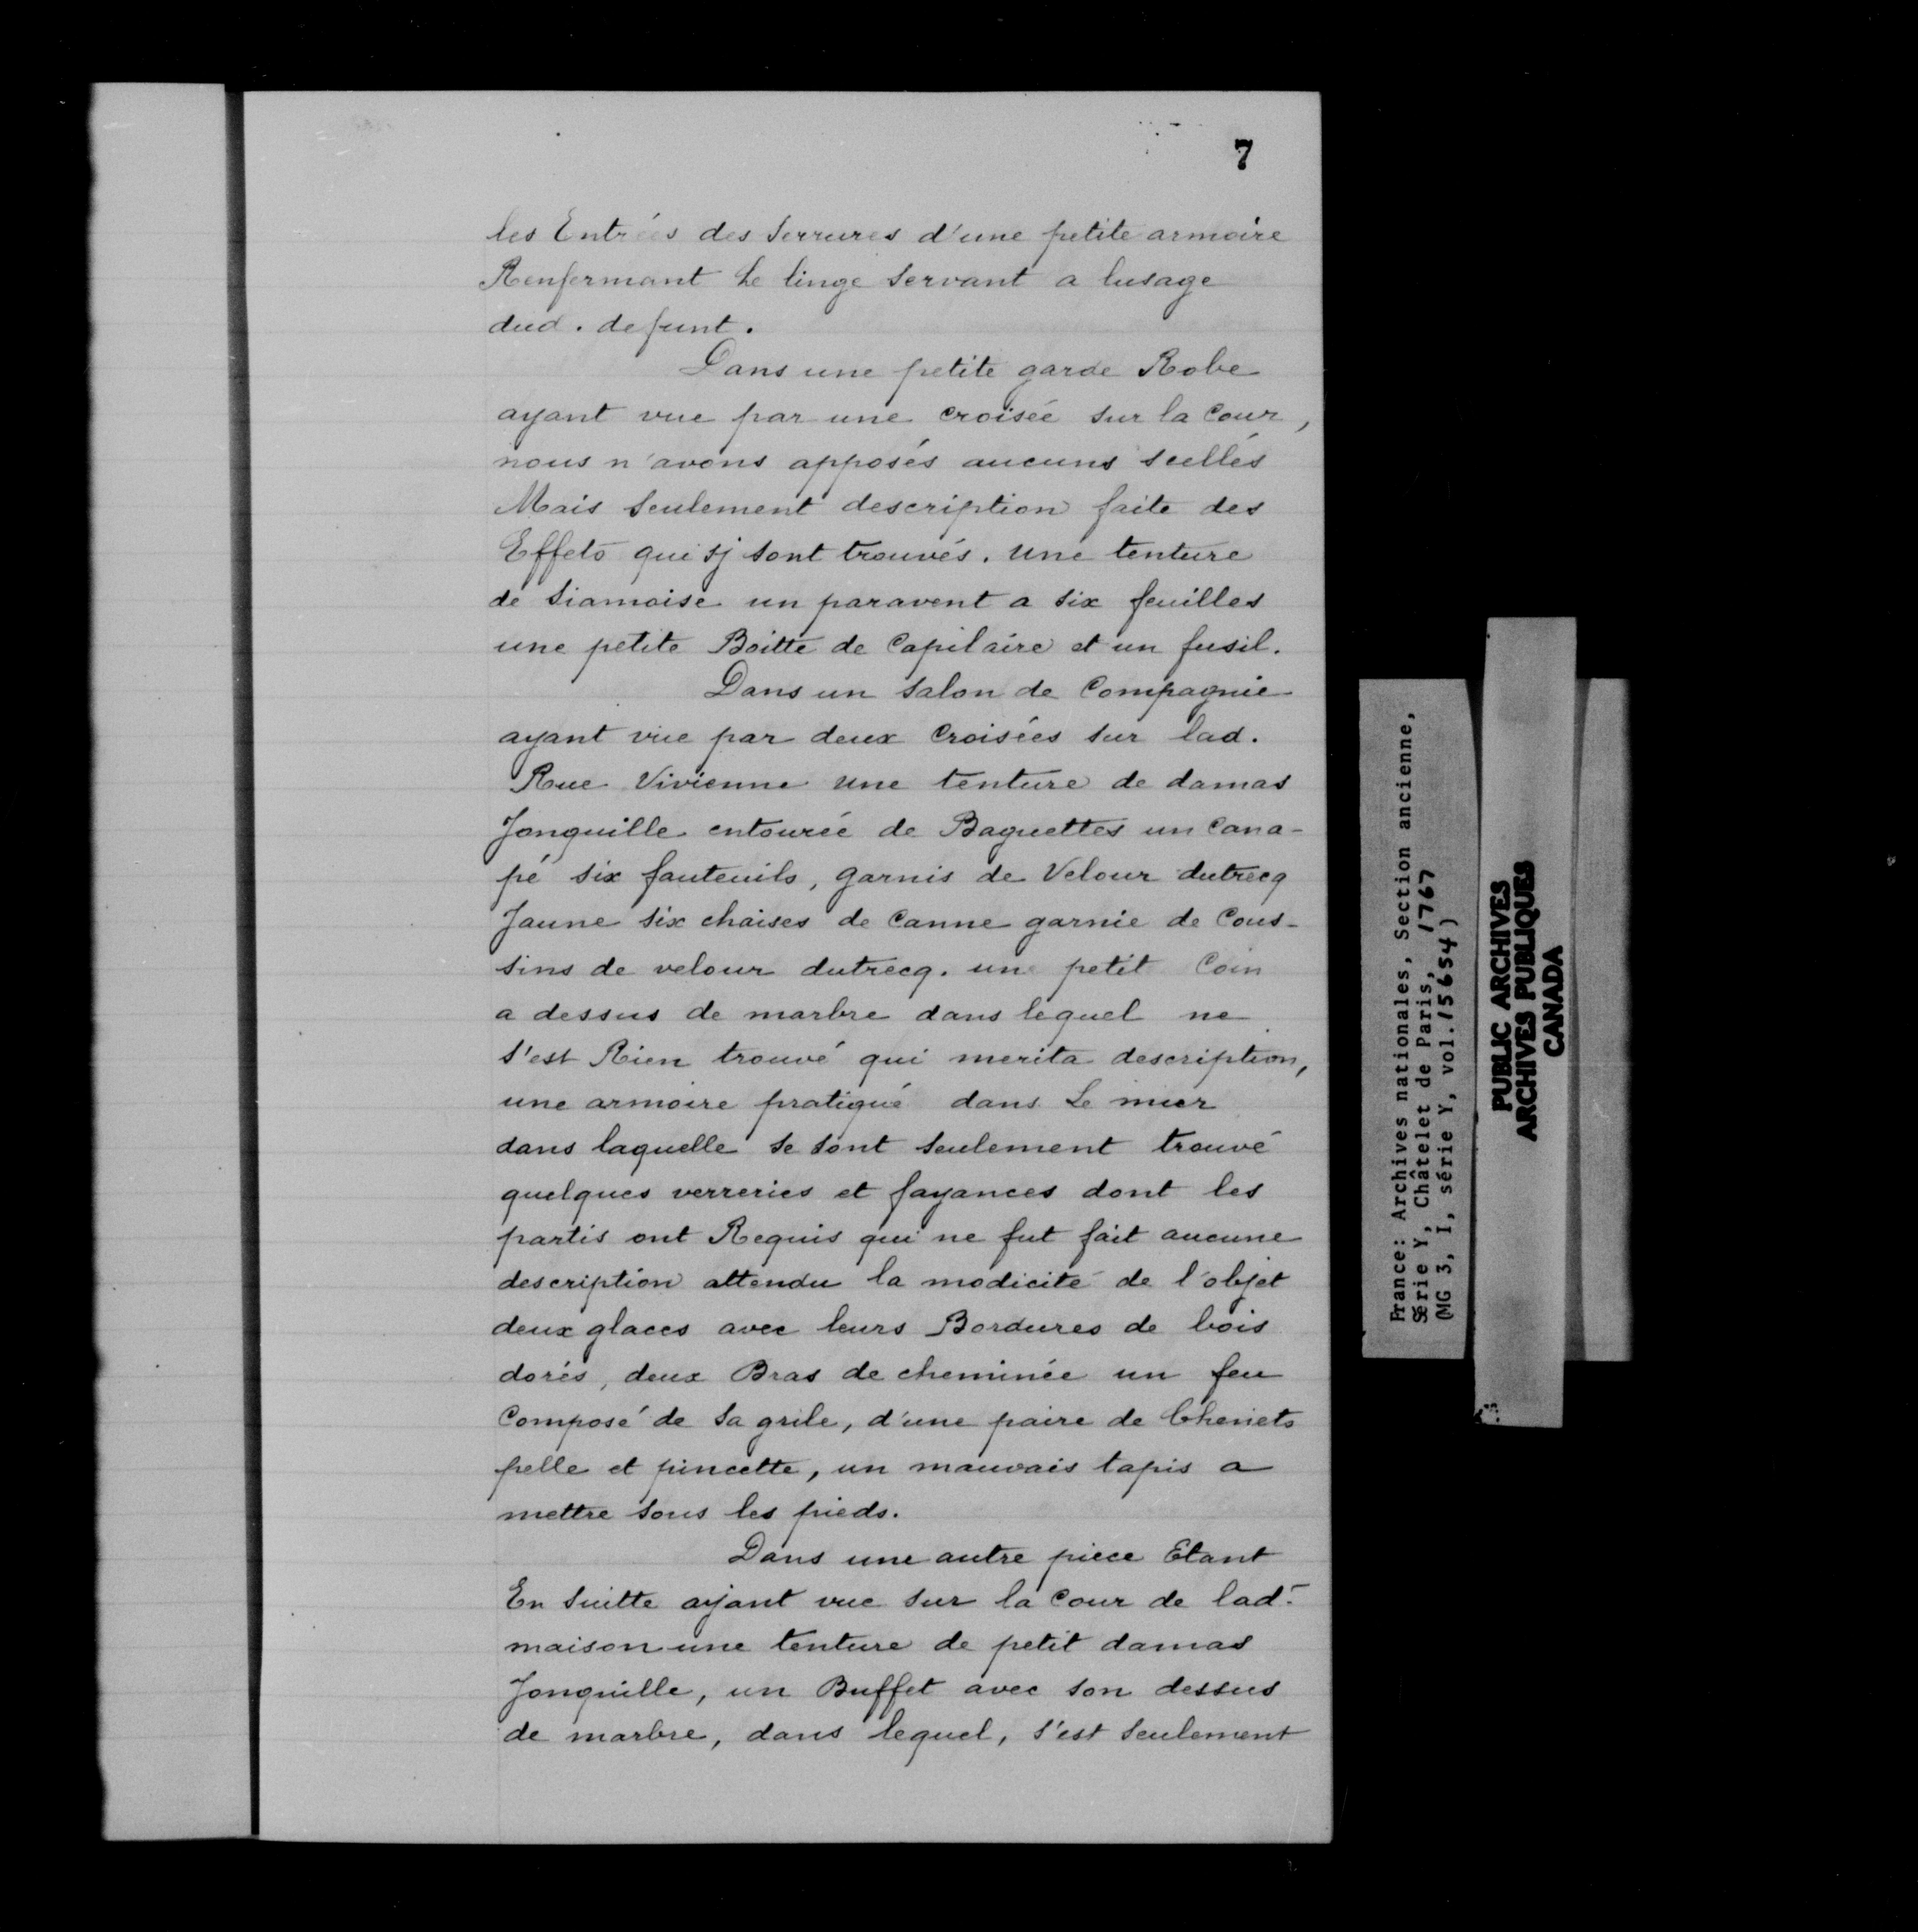 7
les Entrées des Serrures d'une petite armoire
Renfermant Le linge Servant a lusage
dud. defunt.
Dans une petite garde Robe
ayant vue par une croisée sur la Cour,
nous n'avons apposés aucuns scellés
Mais Seulement description faite des
Effets qui sj sont trouvés. une tenture
de Siamoise un paravent a six feuilles
une petite Boitte de Capilaire et un fusil.
Dans un Salon de Compagnie
ayant vue par deux Croisées sur lad.
Rue Vivienne une tenture de damas
Jonquille entourée de Baguettes un Cana-
pé six fauteuils, garnis de Velour dutrecq
Jaune six chaises de Canne garnie de Cous-
sins de velour dutrecq. un petit Coin
a dessus de marbre dans lequel ne
s'est Rien trouvé qui merita description,
une armoire pratiqué dans Le mur
dans laquelle se sont seulement trouvé
quelques verreries et fayances dont les
partis ont Requis qui ne fut fait aucune
description attendu la modicité de l'objet
deux glaces avec leurs Bordures de bois
dorés, deux Bras de cheminée un feu
Composé de sa grile, d'une paire de Chenets
pelle et pincette, un mauvais tapis a
mettre sous les pieds.
Dans une autre piece Etant
En Suitte ajant vue sur la Cour de lad.
maison une tenture de petit damas
Jonquille, un Buffet avec son dessus
de marbre, dans lequel, s'est seulement
France: Archives nationales, Section ancienne,
Série Y, Châtelet de Paris, 1767
(MG 3, I, série Y, vol.15654)
PUBLIC ARCHIVES
ARCHIVES PUBLIQUES
CANADA